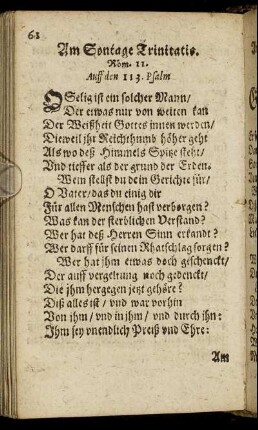 61
Am Sontage Trinitatis.
Röm. 11.
Auff den 113. Psalm
O Selig ist ein solcher Mann/
Der etwas nur von weiten kan
Der Weißheit Gottes innen werden/
Dieweil jhr Reichthumb höher geht
Als wo deß Himmels Spitze steht/
Und tieffer als der grund der Erden.
Wem stellst du dein Gerichte für/
O Vater/das du einig dir
Für allen Menschen hast verborgen?
Was kan der sterblichen Verstand?
Wer hat deß Herren Sinn erkandt?
Wer darff für seinen Rhatschlag sorgen?
Wer hat jhm etwas doch geschenckt/
Der auff vergeltung noch gedenckt/
Die jhm hergegen jetzt gehöre?
Diß alles ist/ vnd war vorhin
Von jhm/ vnd in jhm/ vnd durch jhn:
Jhm sey vnendlich Preiß vnd Ehre:
Am